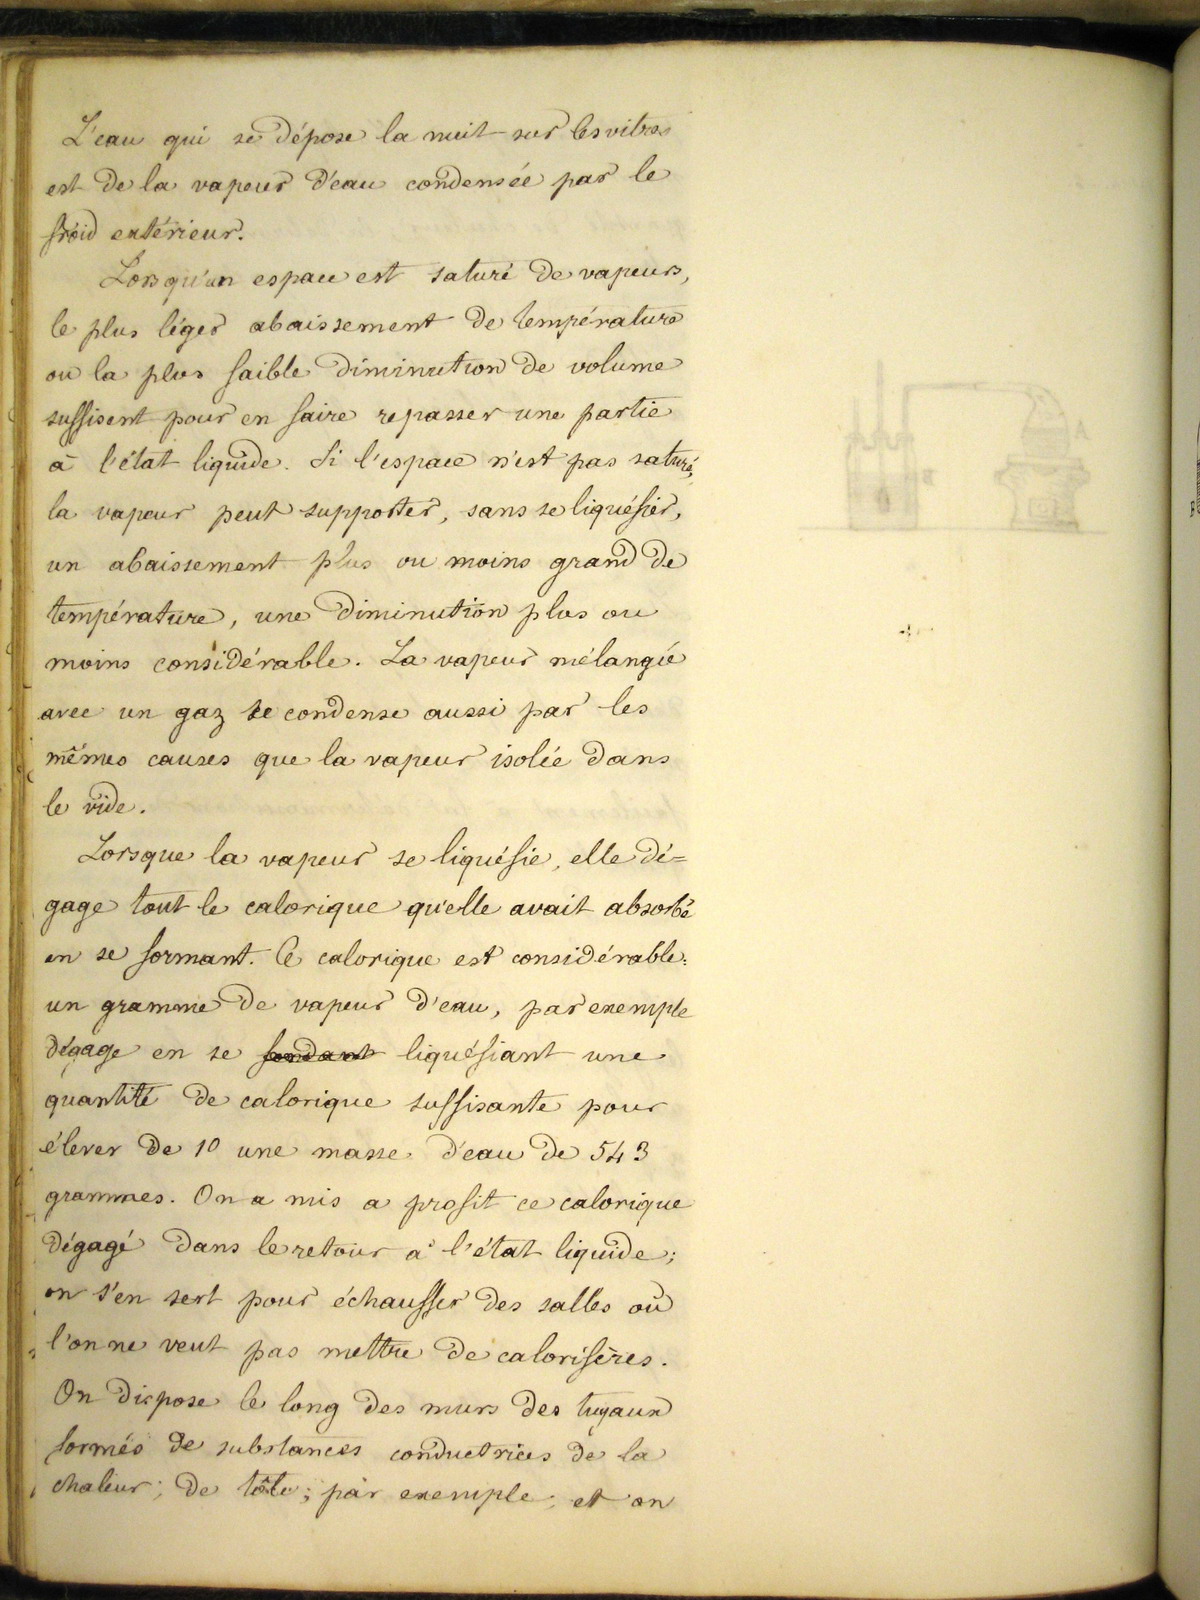 L'eau qui se dépose la nuit sur les vitres
est de la vapeur d'eau condensée par le
froid extérieur.
Lorsqu'un espace est saturé de vapeurs,
le plus léger abaissement de température
ou la plus faible diminution de volume
suffisent pour en faire repasser une partie
à l'état liquide. Si l'espace n'est pas saturé,
la vapeur peut supporter, sans se liquéfier,
un abaissement plus ou moins grand de
température, une diminution plus ou
moins considérable. La vapeur mélangée
avec un gaz se condense aussi par les
mêmes causes que la vapeur isolée dans
le vide.
Lorsque la vapeur se liquéfie, elle dé=
gage tout le calorique qu'elle avait absorbé
en se formant. Ce calorique est considérable:
un gramme de vapeur d'eau, par exemple
dégage en se fondant liquéfiant une
quantité de calorique suffisante pour
élever de 1° une masse d'eau de 543
grammes. On a mis a profit ce calorique
dégagé dans le retour à l'état liquide;
on s'en sert pour échauffer des salles où
l'on ne veut pas mettre de calorifères.
On dispose le long des murs des tuyaux
formés de substances conductrices de la
chaleur; de tôle; par exemple, et on